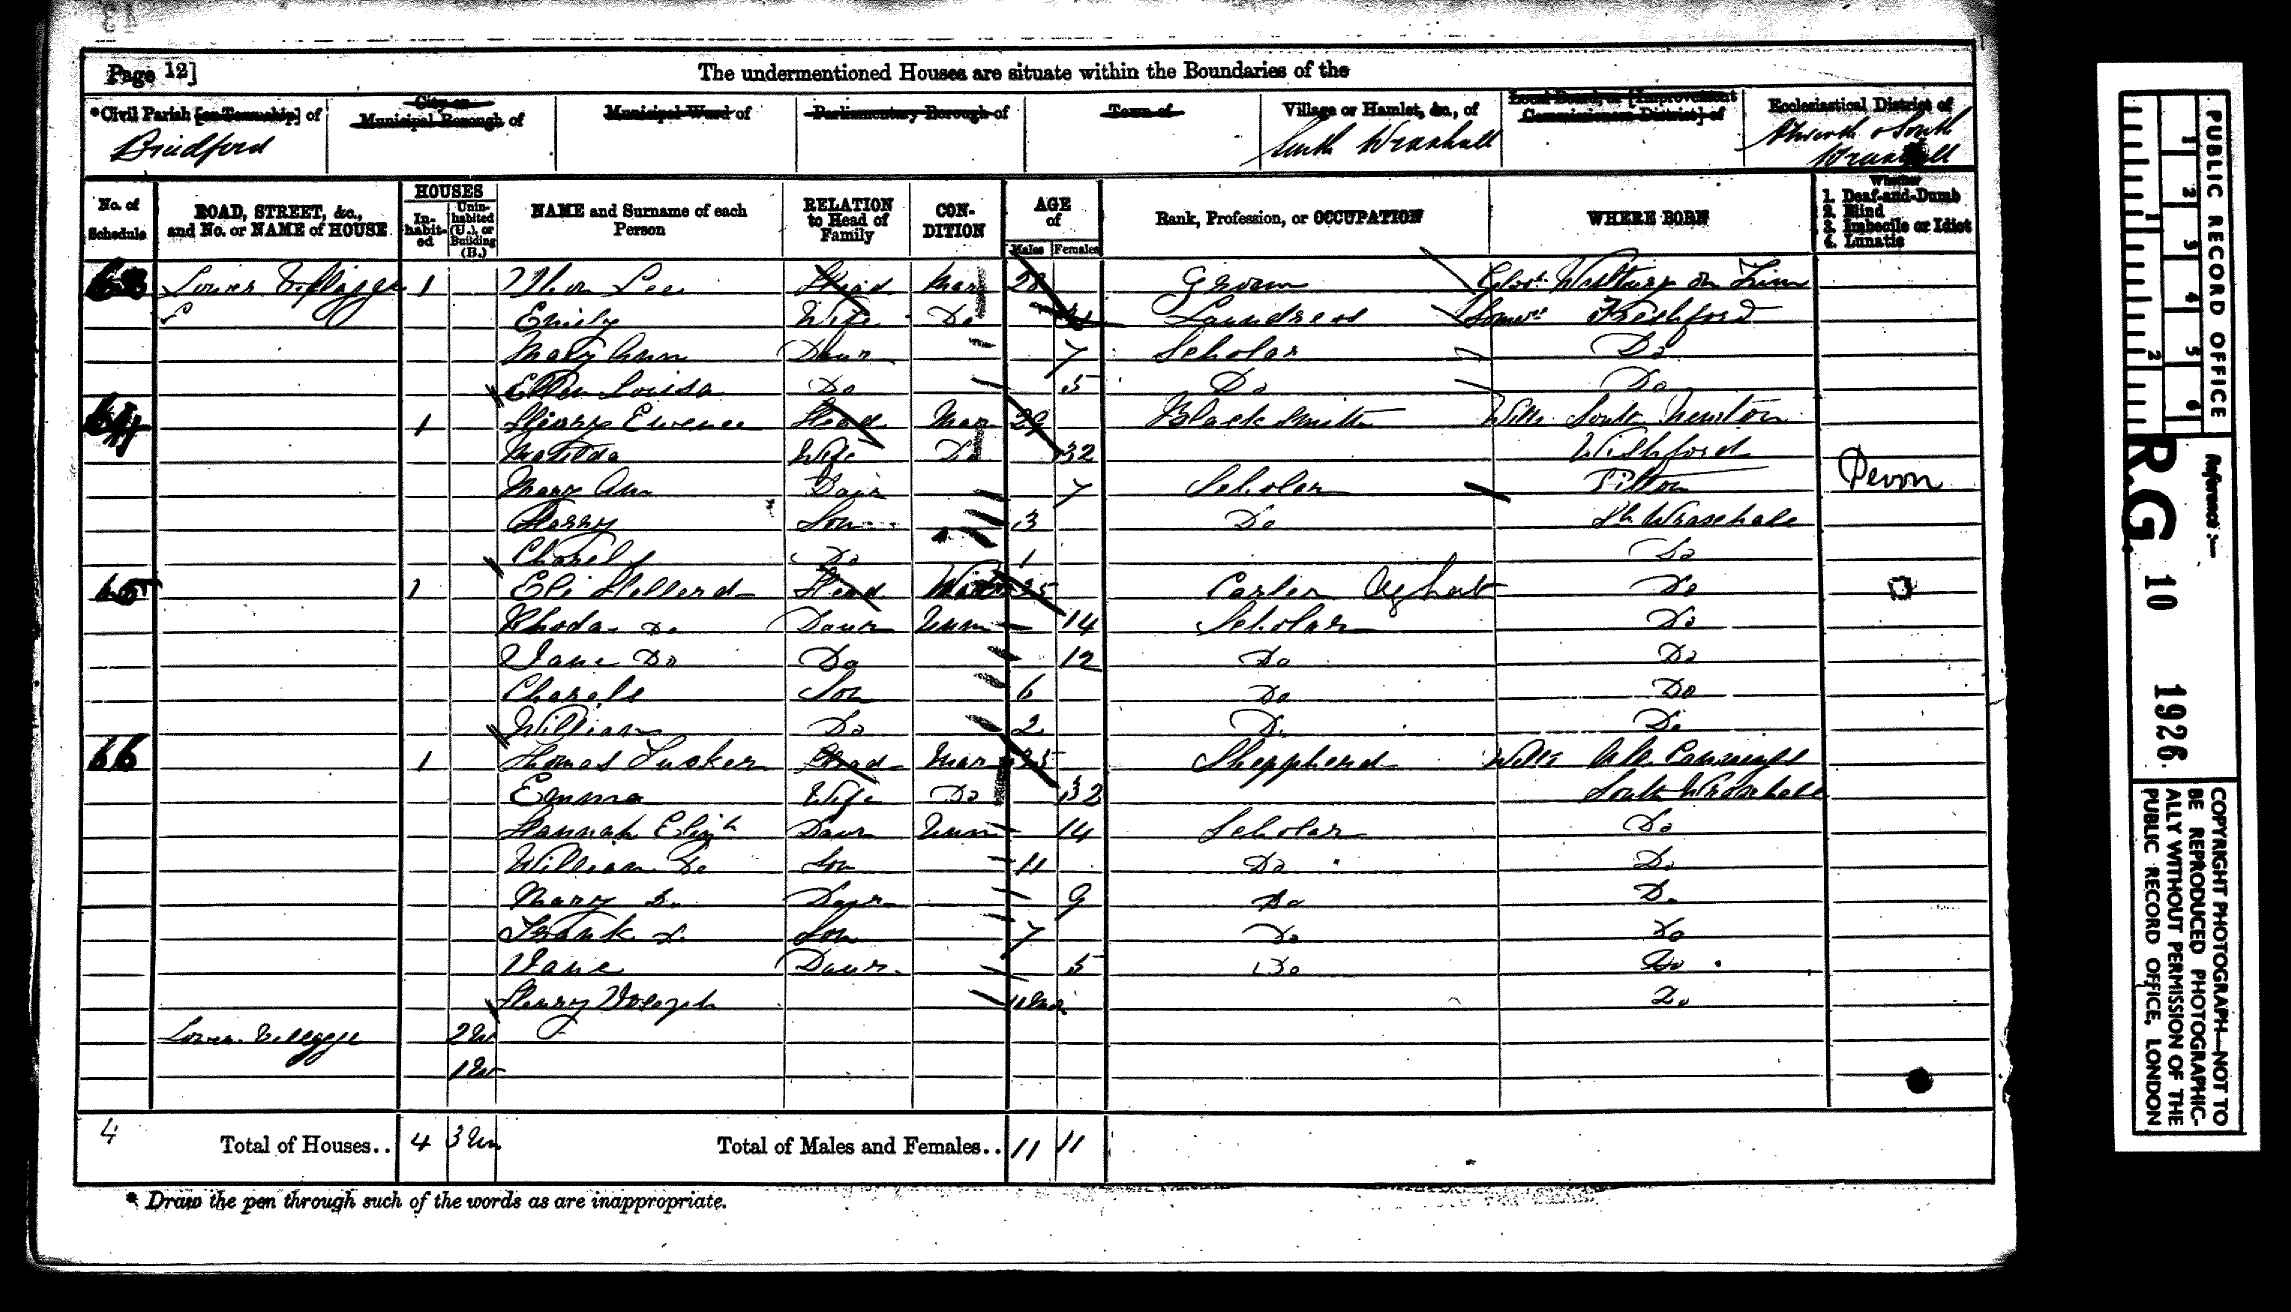 Page 12]
The undermentioned Houses are situate within the Boundaries of the
*Civil Parish [or Township] of
City or Municipal Borough of
Municipal Ward of
Parliamentary Borough of
Town of
Village or Hamlet, &c., of
Local Board, or [Improvement Commissioners District] of
Ecclesiastical District of
Bradford South Wraxhall Atworth & South Wraxhall
No. of Schedule
ROAD, STREET, &c., and No. or NAME of HOUSE
HOUSES
Inhabited
Uninhabited (U.), or Building (B.)
NAME and Surname of each Person
RELATION to Head of Family
CONDITION
AGE of
Males Females
Rank, Profession, or OCCUPATION
WHERE BORN
Whether
1. Deaf-and-Dumb
2. Blind
3. Imbecile or Idiot
4. Lunatic
63 Lower Village 1 Lee Head Mar 28 Groom
Emily Wife Do Laundress Freshford
Mary Ann Daur 7 Scholar Do
Ellen Louisa Do 5 Do Do
64 1 Ewence Head Mar 29 Blacksmith Wilts South Newton
Matilda Wife Do 32 Wishford
Mary Ann Daur 7 Scholar Pilton Devon
Harry Son 3 Do Sh Wraxhale
Charels Do 1 Do
65 1 Eli Hellerd Head 35 Carter Do
Rhoda Do Daur Unm 14 Scholar Do
Jane Do Do 12 Do Do
Charels Son 6 Do Do
William Do 2 Do Do
66 1 Thomas Tucker Head Mar 35 Shepperd Wilts
Emma Wife Do 32 South Wraxhale
Hannah Elizh Daur Unm 14 Scholar Do
William Do Son 11 Do Do
Mary Do Daur 9 Do Do
Frank Do Son 7 Do Do
Jane Daur 5 Do Do
Henry Joseph 11 Mo Do
Lower Village 2 Un
1 Un
4 Total of Houses.. 4 3 Un Total of Males and Females.. 11 11
* Draw the pen through such of the words as are inappropriate.
PUBLIC RECORD OFFICE
1 2 3 4 5 6
1 2
Reference:—
R.G. 10 1926
COPYRIGHT PHOTOGRAPH—NOT TO
BE REPRODUCED PHOTOGRAPHIC-
ALLY WITHOUT PERMISSION OF THE
PUBLIC RECORD OFFICE, LONDON